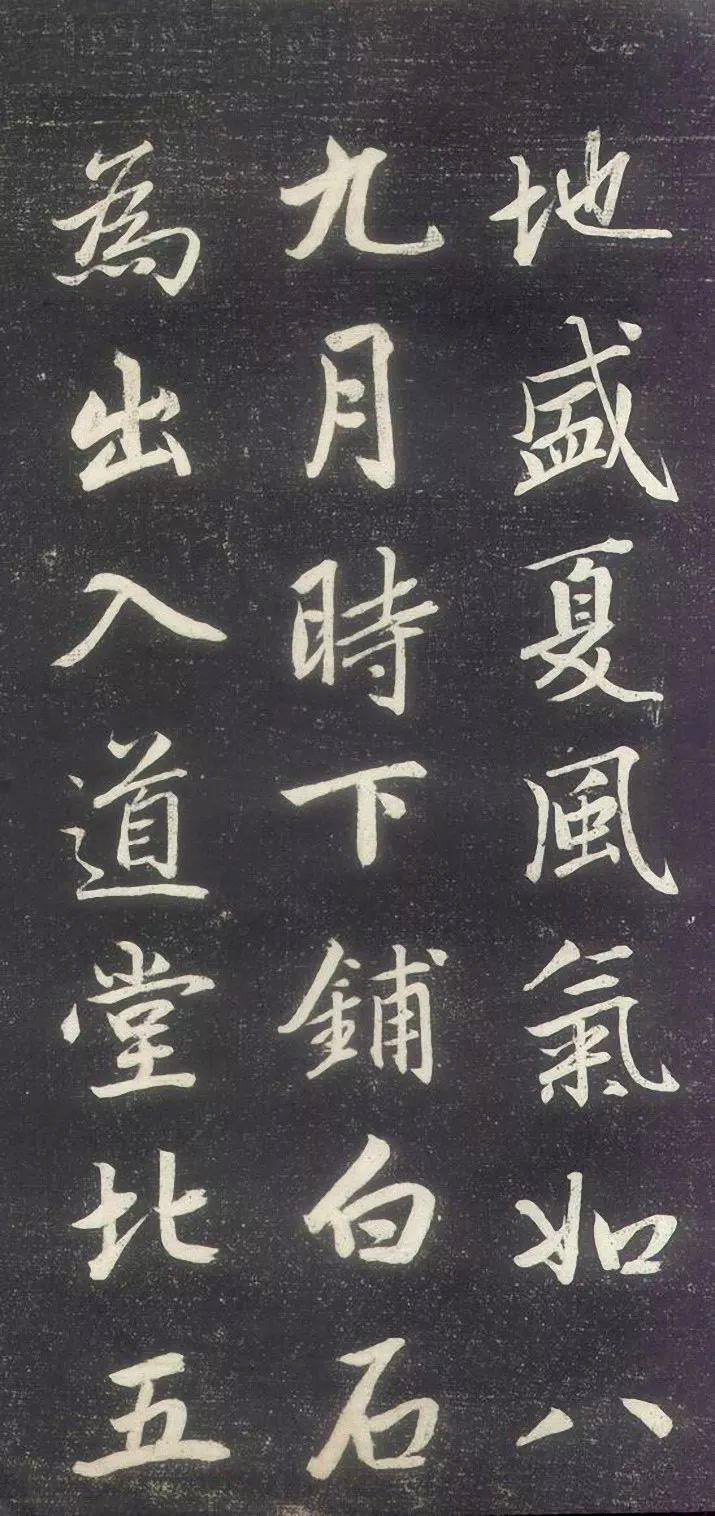 地盛夏風氣如八
九月時下鋪白石
為出入道堂北五